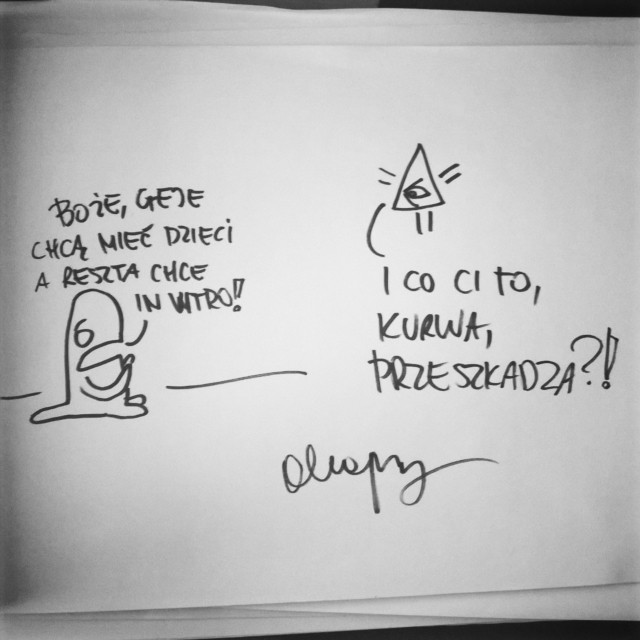 BOŻE, GEJE
CHCĄ MIEĆ DZIECI
A RESZTA CHCE
IN VITRO!!
I CO CI TO,
KURWA,
PRZESZKADZA?!